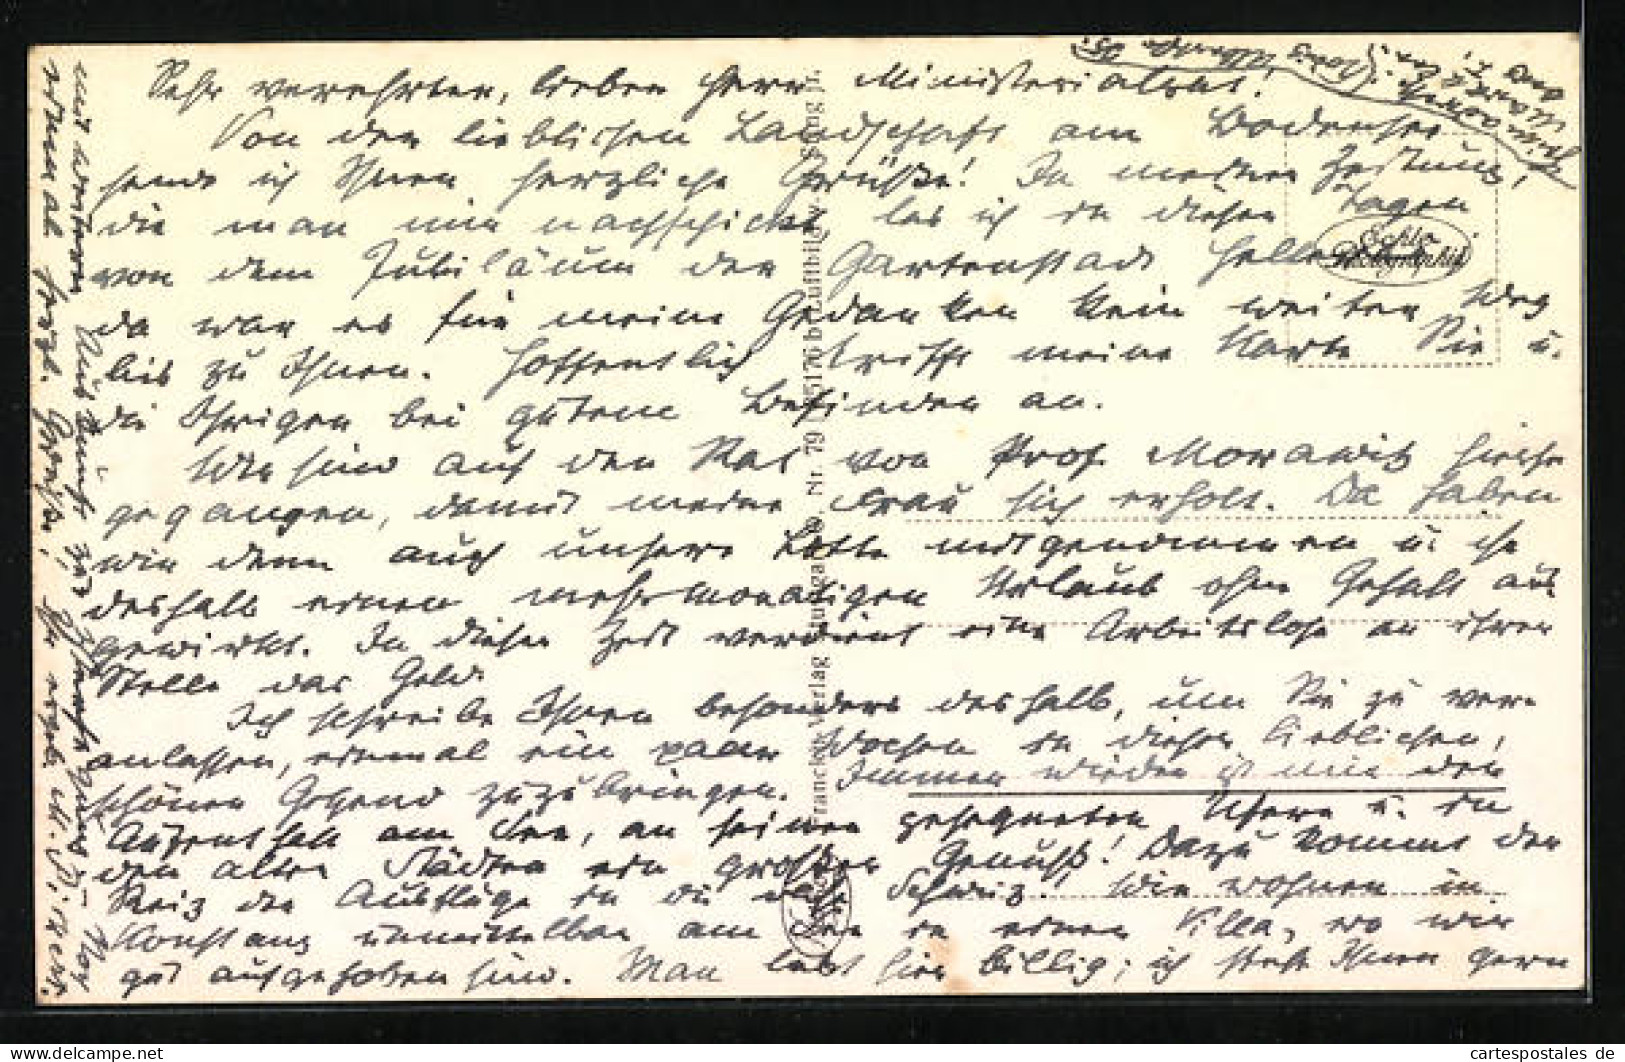 Sehr verehrter, lieber Herr Ministerialrat!
Von der lieblichen Landschaft am Bodensee
sende ich Ihnen herzliche Grüße! In meiner Zeitung,
die man mir nachschickt, las ich in diesen Tagen
von dem Jubiläum der Gartenstadt
da war es für meine Gedanken kein weiter Weg
bis zu Ihnen. Hoffentlich trifft meine Karte Sie u.
die Ihrigen bei gutem Befinden an.
Wir sind auf den Rat von Prof. Morawitz hierher
gegangen, damit meine Frau sich erholt. Da haben
wir denn auch unsere Lotte mitgenommen u. ihr
deshalb einen mehrmonatigen Urlaub ohne Gehalt aus
gewirkt. In dieser Zeit verdient eine Arbeitslose an ihrer
Stelle das Geld.
Ich schreibe Ihnen besonders deshalb, um Sie zu ver-
anlassen, einmal ein paar Wochen in dieser lieblichen,
schönen Gegend zuzubringen. Immer wieder ist mir der
Aufenthalt am See, an seinen gesegneten Ufern u. in
den alten Städten ein großer Genuß! Dazu kommt der
Reiz der Ausflüge in die nahe Schweiz. Wir wohnen in
Konstanz unmittelbar am See in einer Villa, wo wir
gut aufgehoben sind. Man lebt hier billig; ich stehe Ihnen gern
mit weiteren Auskünften zur
herzl. Grüße,
Franckh-Verlag Stuttgart
Nr. 79
Echte
Photographie
cartespostales de